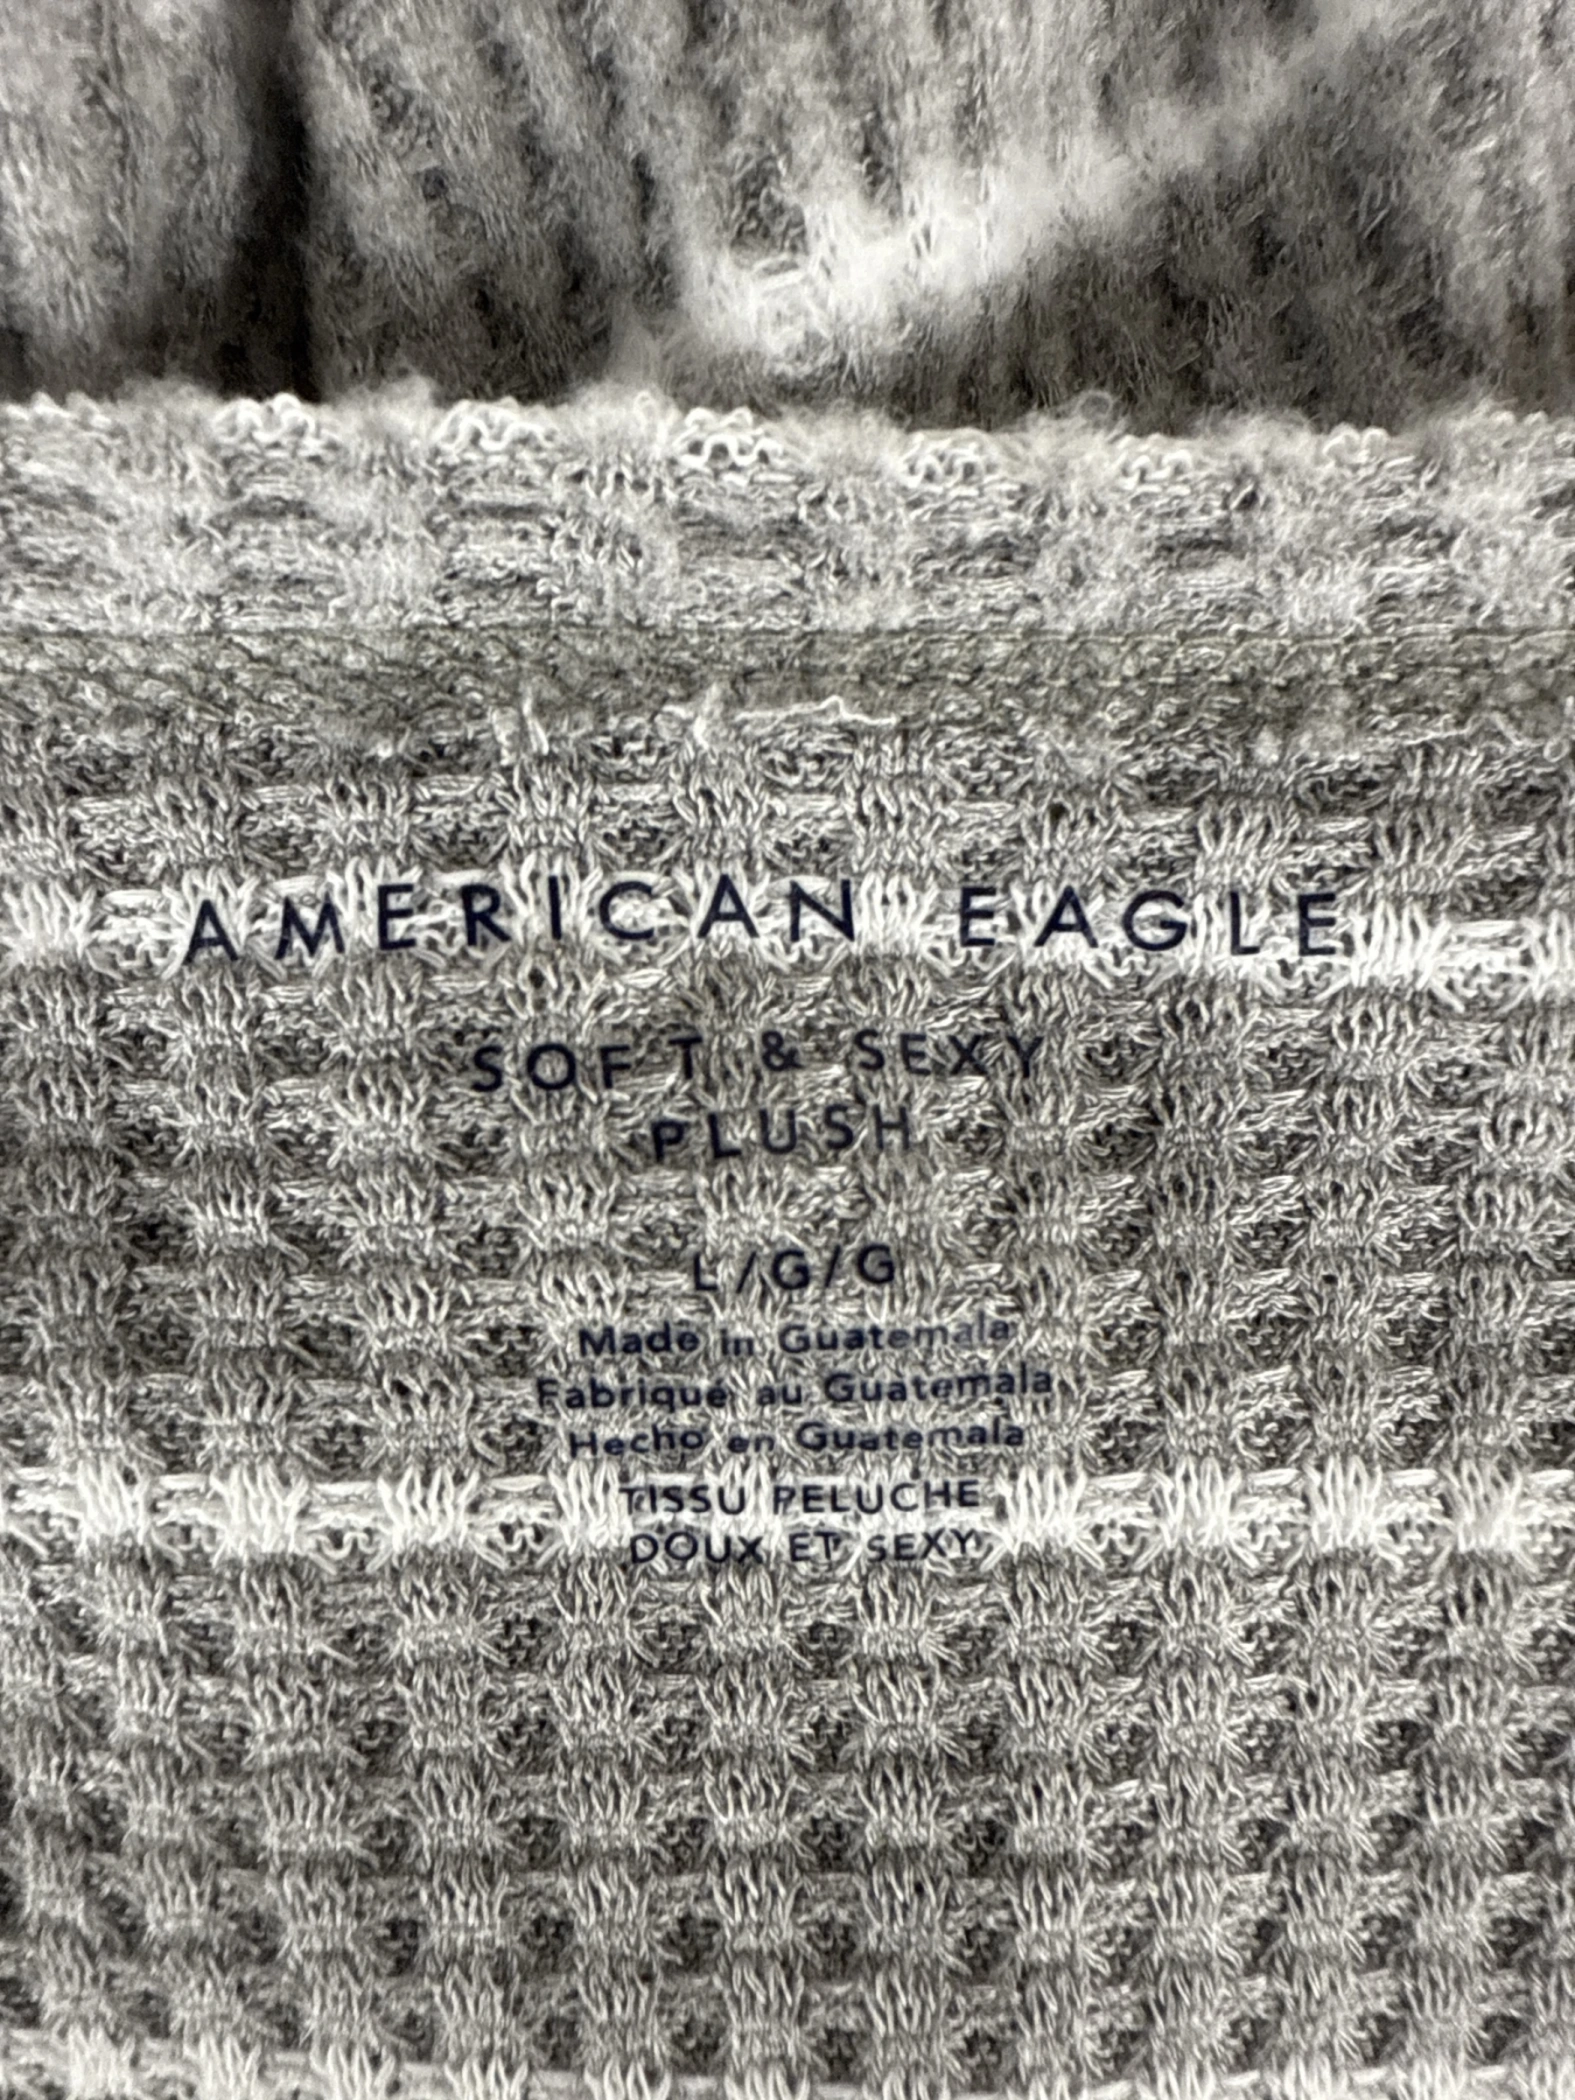 AMERICAN EAGLE
SOFT & SEXY
PLUSH
L/G/G
Made in Guatemala
Fabriqué au Guatemala
Hecho en Guatemala
TISSU PELUCHE
DOUX ET SEXY